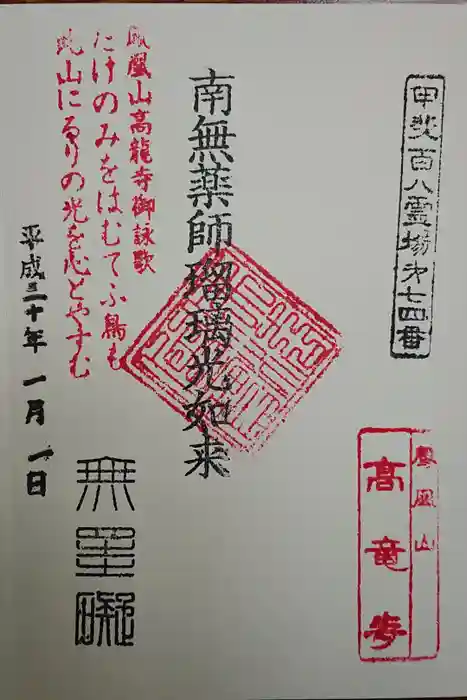 甲斐百八霊場第七四番
鳳凰山
高竜寺
南無薬師瑠璃光如来
鳳凰山高龍寺御詠歌
たけのみをはむてふ鳥も
此山にるりの光を心とやすむ
平成三十年一月一日
無罣礙